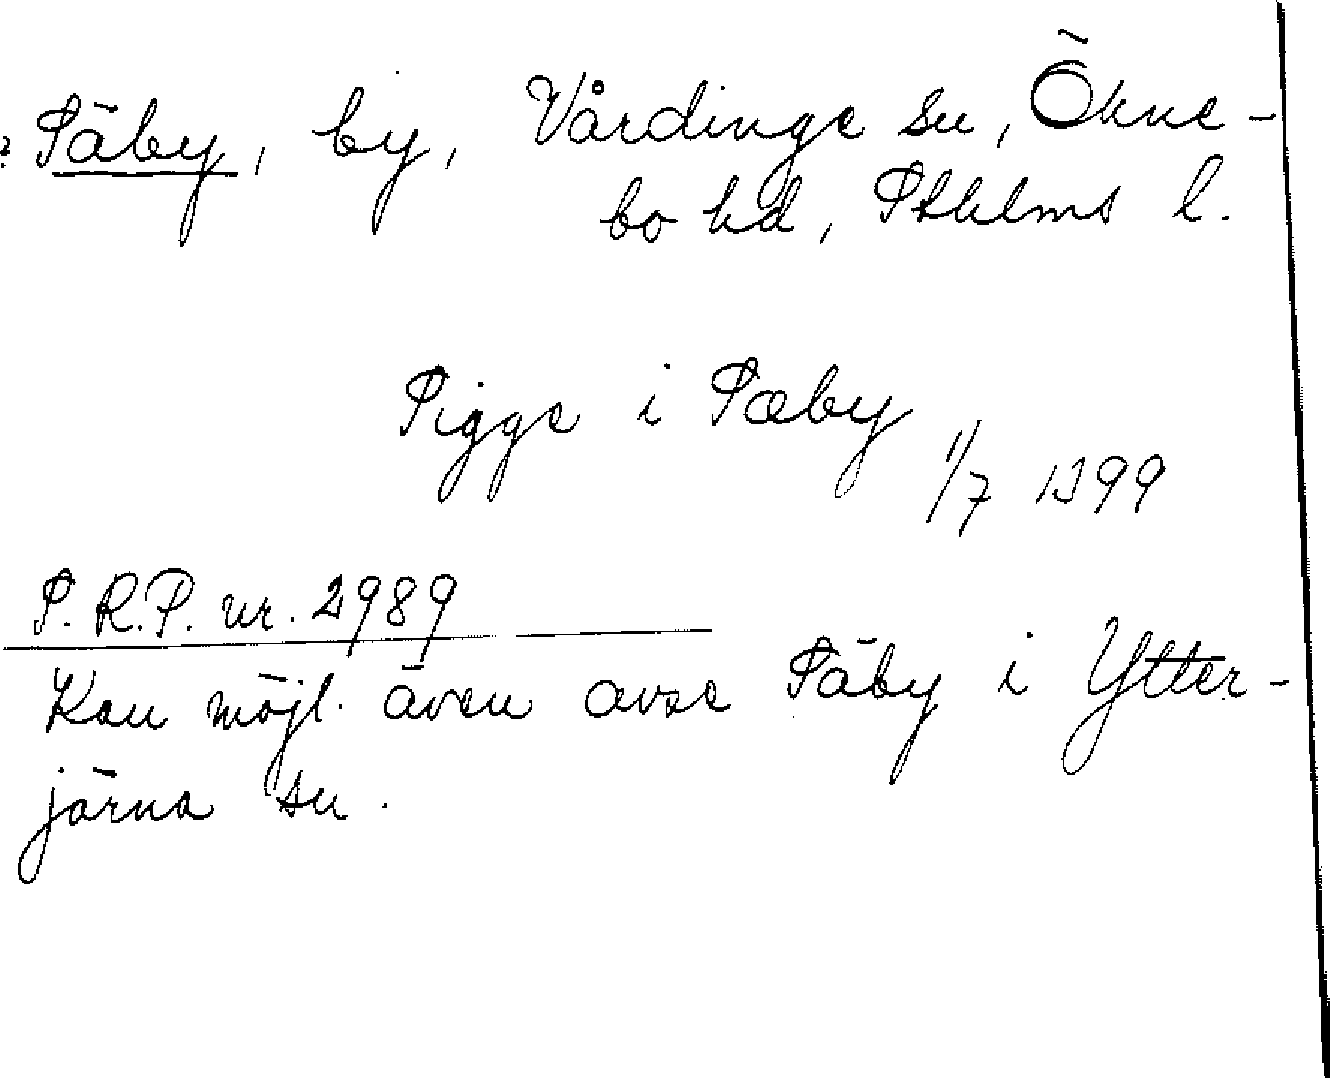 ? Säby, by, Vårdinge sn, Ökne-
bo hd, Sthlms l.
Sigge i Sæby
1/7 1399
S.R.P. nr. 2989
Kan möjl. även avse Säby i Ytter-
järna sn.